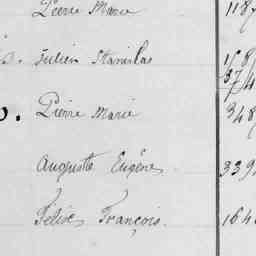 Pierre Marie 118
s. Julien Stanislas
374
o. Pierre Marie 348
Auguste Eugène 339
Félix François. 164